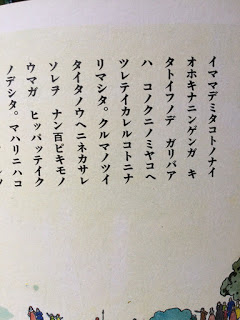 イママデミタコトノナイ
オホキナニンゲンガ キ
タトイフノデ ガリバア
ハ コノクニノミヤコヘ
ツレテイカレルコトニナ
リマシタ。クルマノツイ
タイタノウヘニネカサレ
ソレヲ ナン百ピキモノ
ウマガ ヒッパッテイク
ノデシタ。マハリニハコ